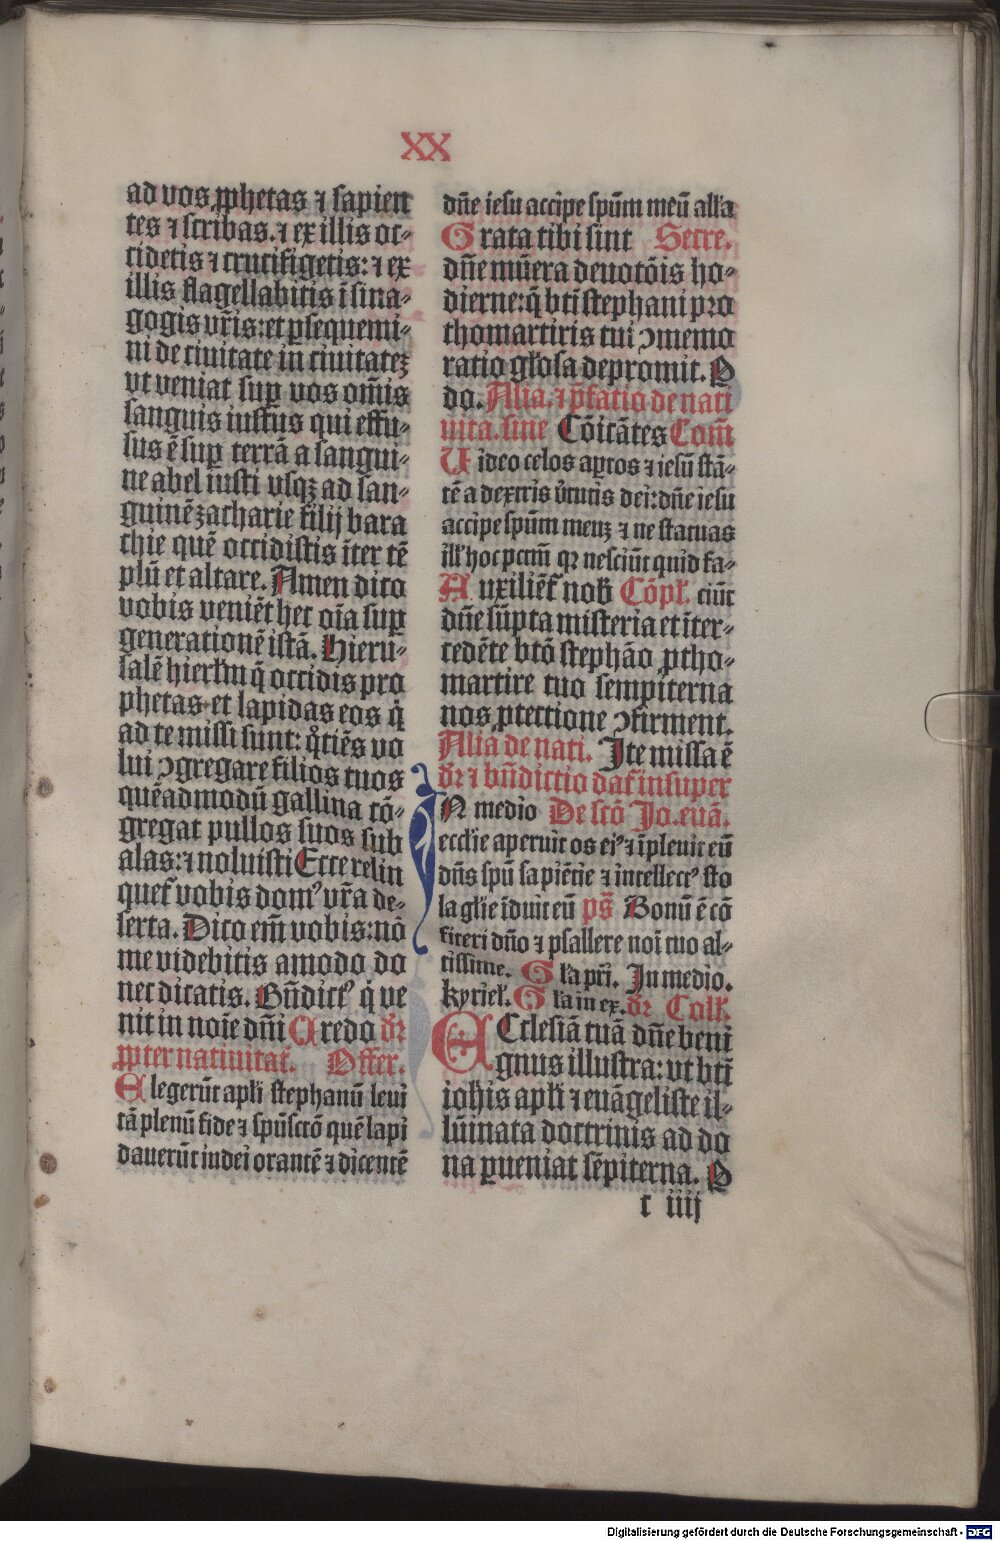 XX
ad vos ꝓphetas ⁊ sapien
tes ⁊ scribas. ⁊ ex illis oc⸗
cidetis ⁊ crucifigetis: ⁊ ex
illis flagellabitis ī sina⸗
gogis vr̄is: et ꝑsequemi⸗
ni de ciuitate in ciuitatēȝ
vt veniat suꝑ vos om̄is
sanguis iustus qui effu⸗
sus ē suꝑ terrā a sangui⸗
ne abel iusti vsqȝ ad san⸗
guinē zacharie filij bara
chie quē occidistis īter tē
plū et altare. Amen dico
vobis veniēt hec oīa suꝑ
generationē istā. Hieru⸗
salē hierłm q̄ occidis pro
phetas et lapidas eos q̇
ad te missi sunt: q̊tiēs vo
lui ꝯgregare filios tuos
quēadmodū gallina cō⸗
gregat pullos suos sub
alas: ⁊ noluisti Ecce relin
quet᷑ vobis domꝰ vr̄a de⸗
serta. Dico em̄ vobis: nō
me videbitis amodo do
nec dicatis. Bn̄dictꝰ q̇ ve
nit in noīe dn̄i Credo dr̄
ꝓpter natiuitat᷑. Offer.
Elegerūt apłi stephanū leui
tā plenū fide ⁊ spūsctō quē lapi
dauerūt iudei orantē ⁊ dicentē
dn̄e iesu accipe spūm meū alła
Grata tibi sint Secre.
dn̄e mūera deuotōis ho⸗
dierne: q̄ bt̄i stephani pro
thomartiris tui ꝯmemo
ratio głosa depromit. P
do. Alia. ⁊ p̄fatio de nati
uita. sine Cōicātes Com̄
Uideo celos aptos ⁊ iesū stā⸗
tē a dextris v̓tutis dei: dn̄e iesu
accipe spūm meuȝ ⁊ ne statuas
ill̓ hoc pctm̄ qꝛ nesciūt quid fa⸗
Auxiliēt᷑ nob̄ Cōpł. ciūt
dn̄e sūpta misteria et īter⸗
cedēte btō stephāo ꝓtho⸗
martire tuo sempiterna
nos ꝓtectione ꝯfirment.
Alia de nati. Ite missa ē
dr̄ ⁊ bn̄dictio dat᷑ insuper
IN medio De sctō Jo. euā.
eccłie aperuit os eiꝰ ⁊ īpleuit eū
dn̄s spū sapiētie ⁊ intellectꝰ sto
la głie īduit eū ps̄ Bonū ē cō
fiteri dn̄o ⁊ psallere noī tuo al⸗
tissime. Gła pr̄i. In medio.
kyrieł. Głain ex. dr̄ Coll̓.
ECclesiā tuā dn̄e beni
gnus illustra: vt bt̄i
ioh̄is apłi ⁊ euāgeliste il⸗
lūinata doctrinis ad do
na ꝑueniat sēpiterna. P
c iiij
Digitalisierung gefördert durch die Deutsche Forschungsgemeinschaft - DFG